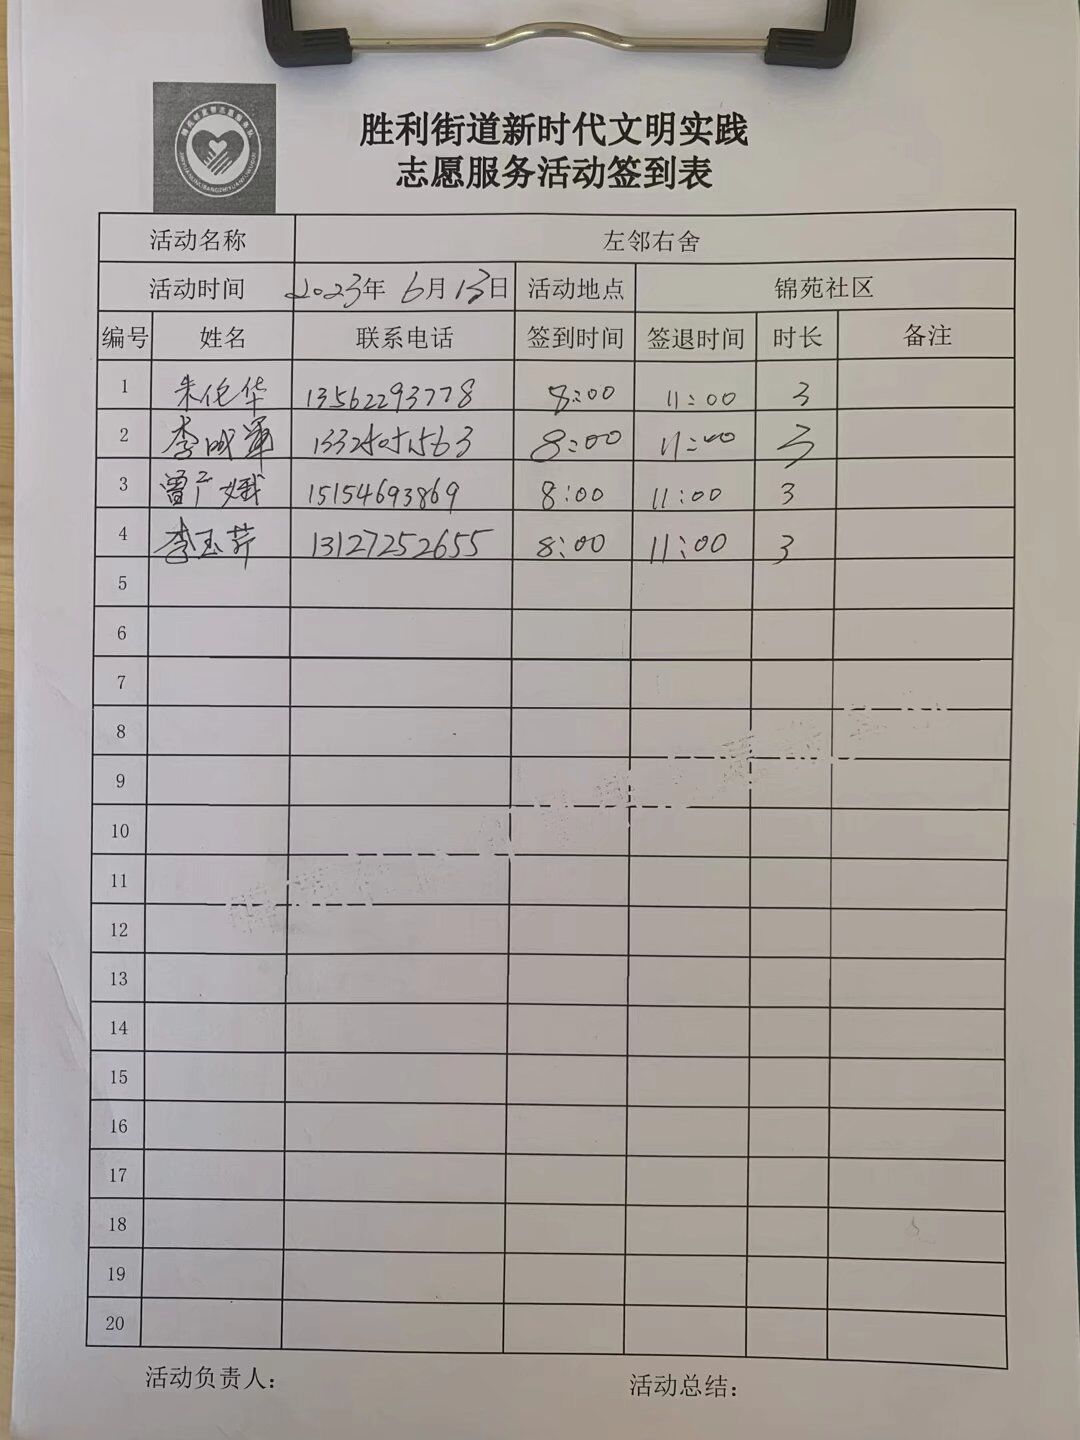 胜利街道新时代文明实践
志愿服务活动签到表
活动名称 左邻右舍
活动时间 2023年 6月13日 活动地点 锦苑社区
编号 姓名 联系电话 签到时间 签退时间 时长 备注
1 朱伦华 13562293778 8:00 11:00 3
2 李成军 8:00 11:00 3
3 曾广娥 15154693869 8:00 11:00 3
4 李玉芹 13127252655 8:00 11:00 3
5
6
7
8
9
10
11
12
13
14
15
16
17
18
19
20
活动负责人: 活动总结: